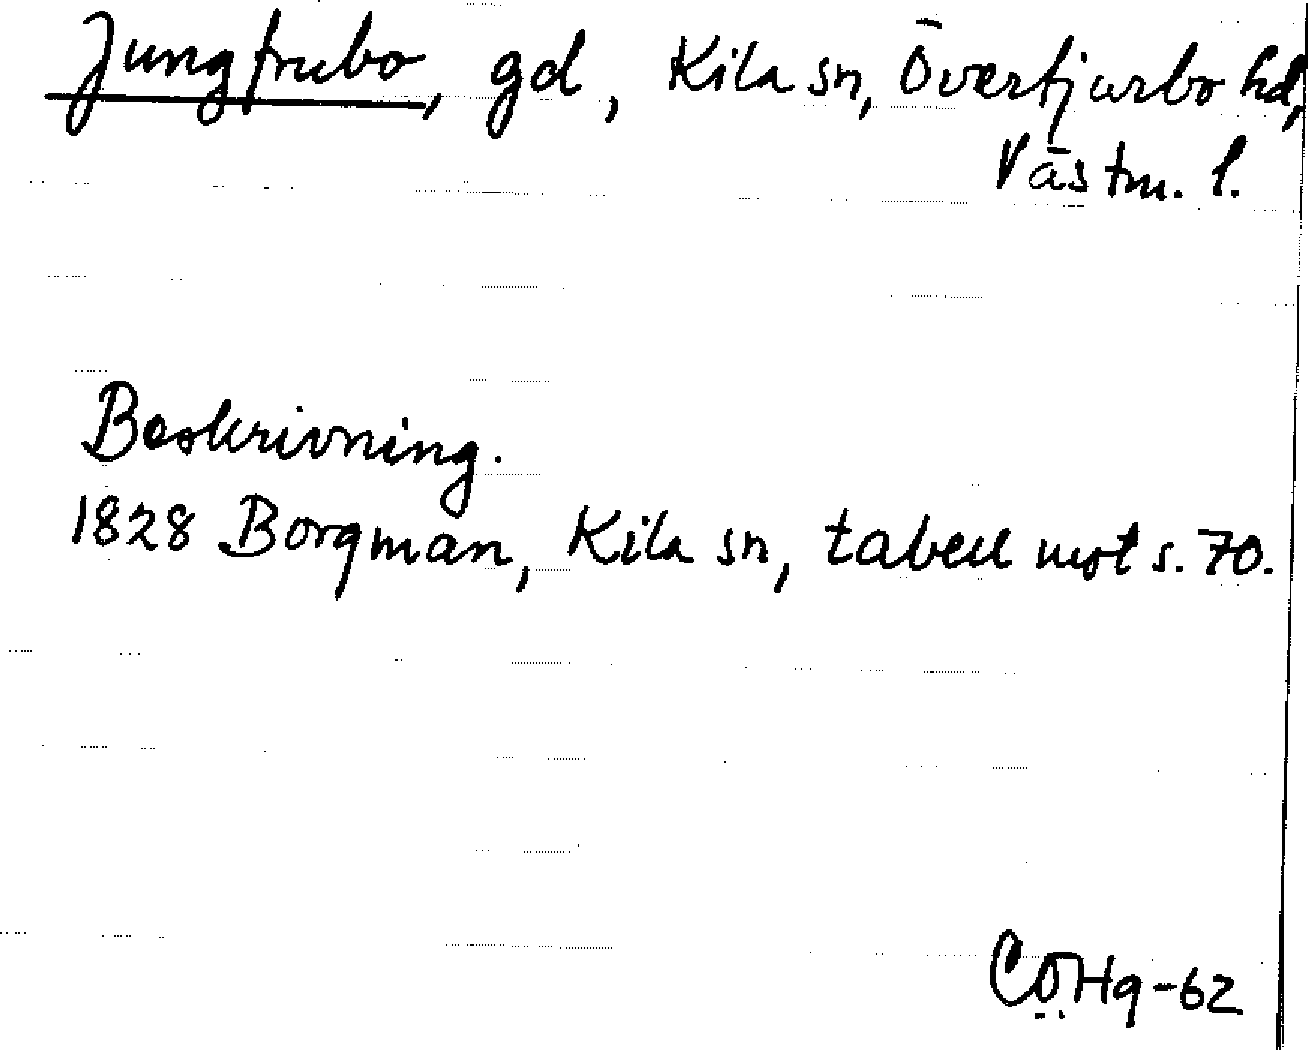 Jungfrubo, gd, Kila sn, Övertjurbo hd,
Västm. l.
Beskrivning.
1828 Borgman, Kila sn, tabell mot s. 70.